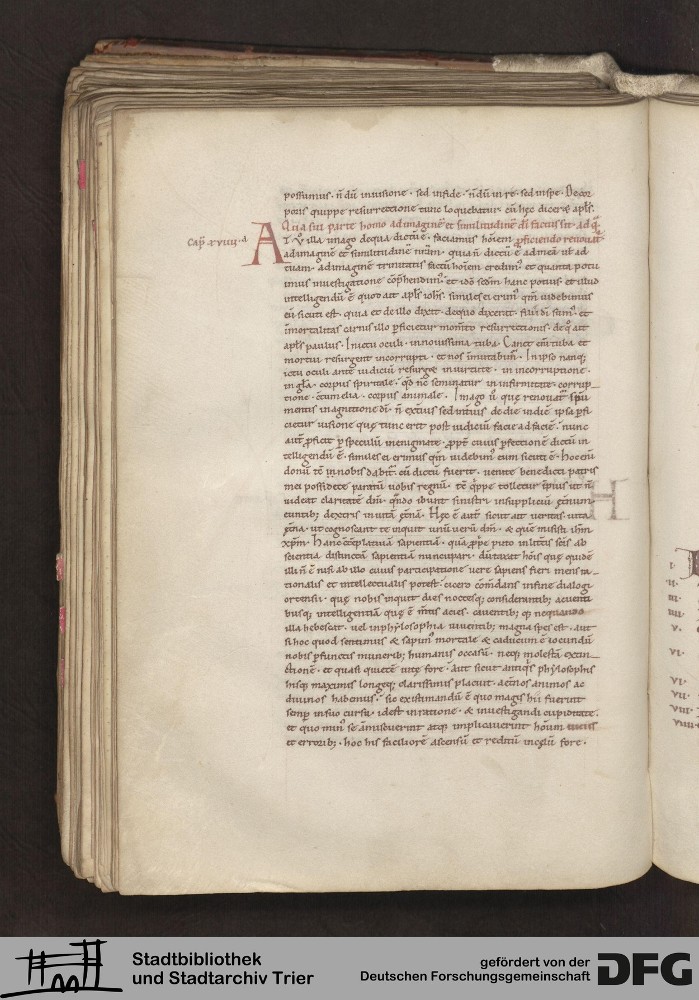 possumus. n̄ dū in uisione. sed in fide. n̄ dū in re. sed in spe. De cor
poris quippe resurrectione tunc loquebatur cū hęc diceret apl̄s.
Qua sui parte homo ad imaginē et similitudinē dī factus sit. ad q̄
Capͫ. xviiii.
AT ů illa imago de qua dictū ē. faciamus hoīem p̄ficiendo renouat͛
ad imaginē et similitudinē nr̄am. quia n̄ dictū ē ad meā uł ad
tuam. ad imaginē trinitatis factū hoīem credimꝰ. et quanta potu
imus inuestigatione cōp̄hendimꝰ. et idō sc̄dm hanc potius et illud
intelligendū ē quod ait apl̄s ioh̄s. similes ei erimꝰ qm̄ uidebimus
eū sicuti est. quia et de illo dixit. de quo dixerat filii dī sumꝰ. et
inmortalitas carnis illo perficietur momto resurrectionis. de q̊ ait
apl̄s paulus. In ictu oculi. in nouissima tuba. Canet eni tuba et
mortui resurgent incorrupti. et nos inmutabimꝰ. In ipso nanq;
ictu oculi ante iudiciū resurget in uirtute. in incorruptione.
in gl̄a. corpus spiritale. qd̄ nc̄ seminatur in infirmitate. corrup
tione. contumelia. corpus animale. Imago ů quę renouat͛ in sp̄u
mentis in agnitione dī. n̄ exterius sed interius de die in diē ipsa p̄fi
cietur uisione quę tunc erit post iudiciū facie ad faciē. nunc
autē proficit p speculū in enigmate. ꝓpt̄ cuius p̄fectionē dictū in
telligendū ē. similes ei erimus qm̄ uidebimꝰ eum sicuti ē. Hoc eni
donū tc̄ in nobis dabit͛. cū dictū fuerit. uenite benedicti patris
mei possidete paratū uobis regnū. tc̄ q̄ppe tolletur impius ut n̄
uideat claritatē dn̄i. qn̄do ibunt sinistri in suppliciū ęternum
euntib; dexteris in uitā ęt̄nā. Hęc ē autē sicut ait ueritas uita
ęt̄na. ut cognoscant te inquit unū uerū dm̄. & quē misisti ih̄m
xp̄m. Hanc cōtēplatiuā sapientiā. quā ꝓprie puto in litt̄is sc̄is ab
scientia distinctā sapientiā nuncupari. dūtaxat hoīs quę quidē
illi n̄ ē nisi ab illo cuius participatione uere sapiens fieri mens ra
tionalis et intellectualis potest. cicero cōmendans in fine dialogi
ortensii. quę nobis inquit dies noctesq; considerantib; acuenti
busq; intelligentiā quę ē m̄tis acies. cauentib; q; ne quando
illa hebescat. uel in phylosophia uiuentib; magna spes est. aut
si hoc quod sentimus & sapimꝰ mortale & caducum ē iocundū
nobis p̄functis munerib; humanis occasū. neq; molestā extin
ctionē. et quasi quietē uitę fore. Aut sicut antiq̄s phylosophis
hisq; maximis longeq; clarissimis placuit. aet̄nos animos ac
diuinos habemus. sic existimandū ē quo magis hii fuerint
semp in suo cursu. id est in ratione. & inuestigandi cupiditate.
et quo minꝰ se admiscuerint atq; implicauerint hoīum uiciis
et errorib;. hoc his faciliorē ascensū et reditū in cęlū fore.
I.
II.
III.
V.
VI.
VI.
VII.
VIII.
VIIII.
Stadtbibliothek
und Stadtarchiv Trier
gefördert von der
Deutschen Forschungsgemeinschaft
DFG